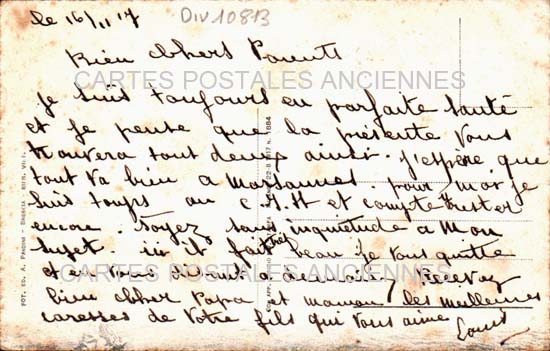 le 16/11/17 Div10813
Bien chers Parents
CARTES POSTALES ANCIENNES
je suis toujours en parfaite santé
et je pense que la présente vous
trouvera tout deux ainsi. j'espère que
tout va bien a Marsannes. pour moi je
suis toujs au C.I.H et compte rester
encore. Soyez sans inquietude a mon
sujet. ici it fait très beau je vous quitte
CARTES POSTALES ANCIENNES
et en vous disant a demain, Recevez
bien cher Papa et maman les meilleures
caresses de votre fils qui vous aime
Louis
FOT. ED. A. PANDINI - BRESCIA - RIPR. VIET.
22-8-1917 N. 1884